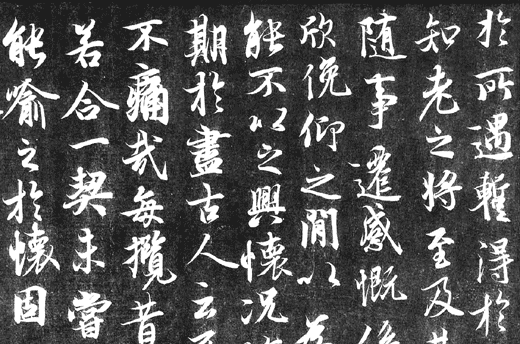 於所遇暫得於
知老之將至及
隨事遷感慨係
欣俛仰之閒以為
能不以之興懷況
期於盡古人云
不痛哉每攬昔
若合一契未嘗
能喻之於懷固